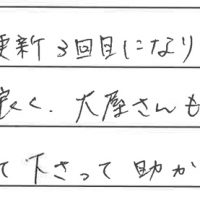 更新3回目になり
良く、大屋さんも
て下さって助か